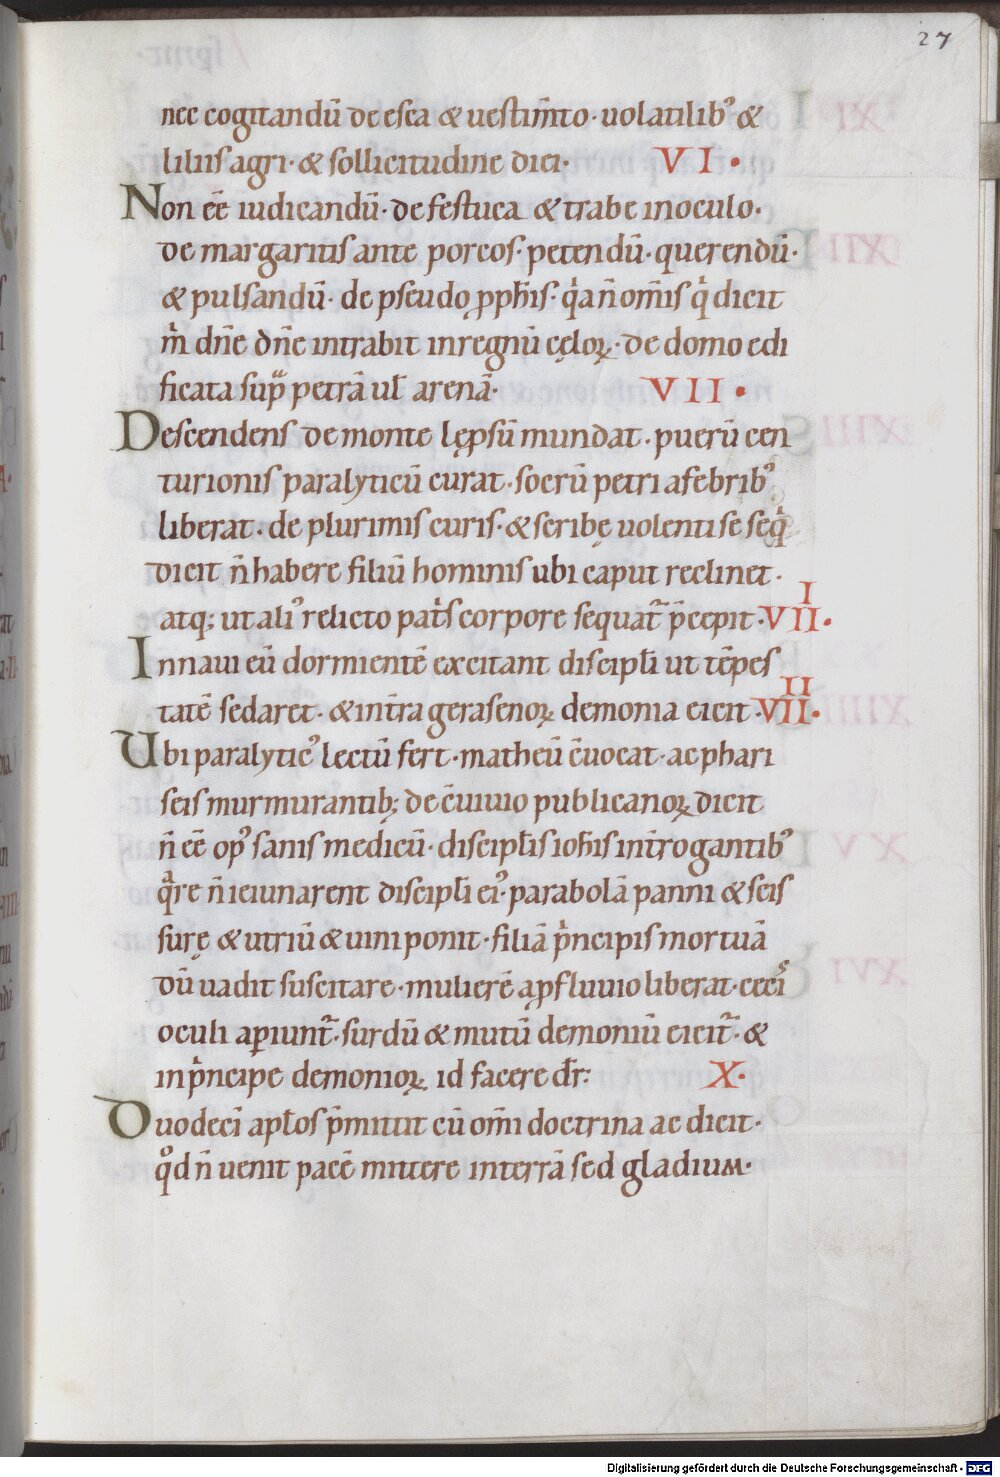 27
nec cogitandū de esca & uestim̄to · uolatilib᾽ &
liliis agri · & sollicitudine diei · VI ·
Non eē iudicandū · de festuca & trabe in oculo ·
de margaritis ante porcos · petendū · querendū ·
& pulsandū · de pseudo ꝓph̄is · qͥa n̄ om̄is qͥ dicit
mͥ dn̄e dn̄e intrabit in regnū cęloꝝ · de domo edi
ficata supͣ petrā ul̄ arenā · VII ·
Descendens de monte lępsū mundat · puerū cen
turionis paralyticū curat · socrū petri a febrib᾽
liberat · de plurimis curis · & scribę uolenti se seqͥ
dicit n̄ habere filiū hominis ubi caput reclinet ·
atq; ut ali᾽ relicto pat̄s corpore sequat̄ p̄cepit · VIII ·
In naui eū dormientē excitant discipl̄i ut tēpes
tatē sedaret · & int̄ra gerasenoꝝ demonia eicit · VIIII ·
Ubi paralytic᾽ lectū fert · matheū c̄uocat · ac phari
seis murmurantib; de c̄uiuio publicanoꝝ dicit
n̄ eē op᾽ sanis medicū · discipl̄is ioh̄is int̄rogantib᾽
qͣre n̄ ieiunarent discipl̄i ei᾽ · parabolā panni & scis
surę & utriū & uini ponit · filiā pͥncipis mortuā
dū uadit suscitare · mulierē a ꝓfluuio liberat · cecͦ᷒ı
oculi aꝑiunt̄ · surdū & mutū demoniū eicit̄ · &
in pͥncipe demonioꝝ id facere dr̄ : X ·
Duodecī apl̄os p̄mittit cū om̄i doctrina ac dicit ·
qͦd n̄ uenit pacē mittere in terrā sed gladium ·
Digitalisierung gefördert durch die Deutsche Forschungsgemeinschaft - DFG